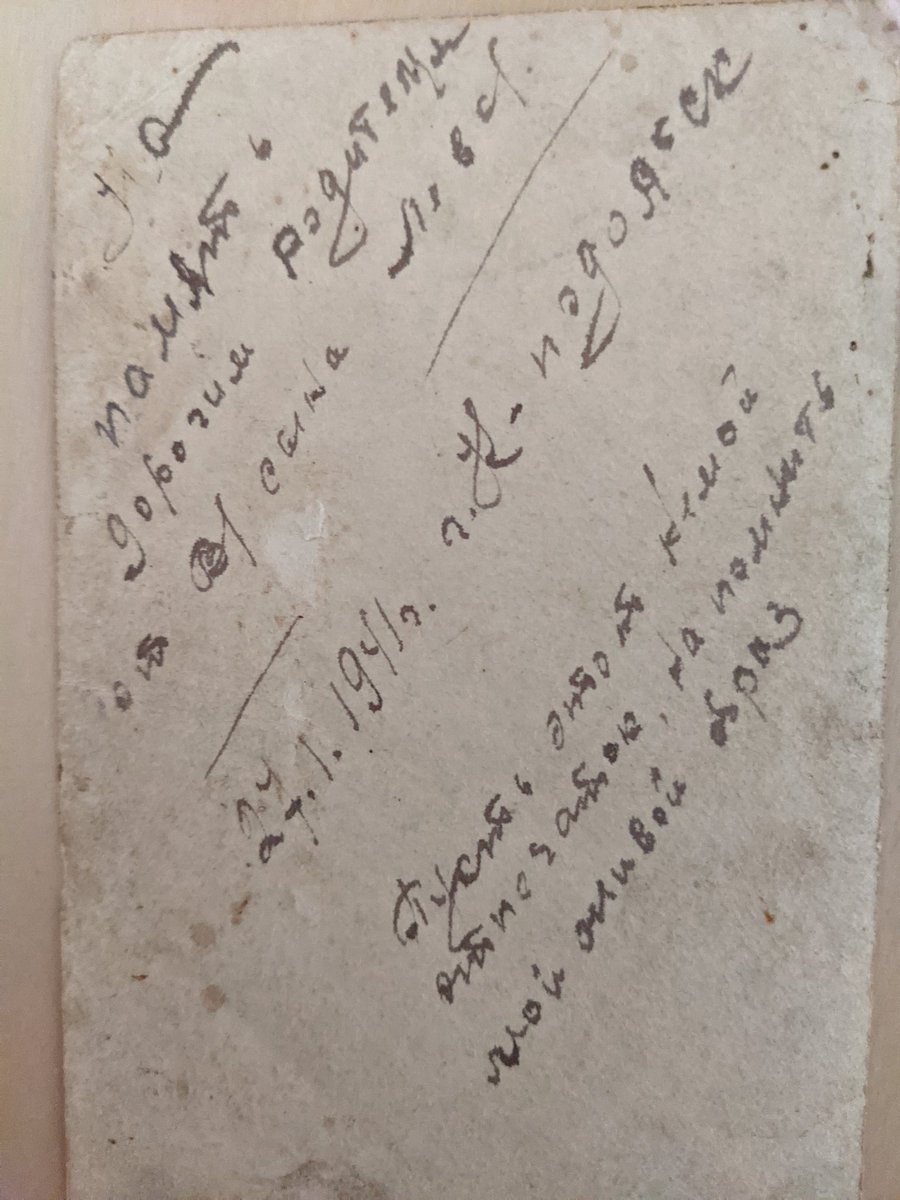 На
память
дорогим родителям
от сына Лёва
24.1.1941г. г. К-подольск
Пусть этот немой
отпечаток, на помнить
мой живой образ